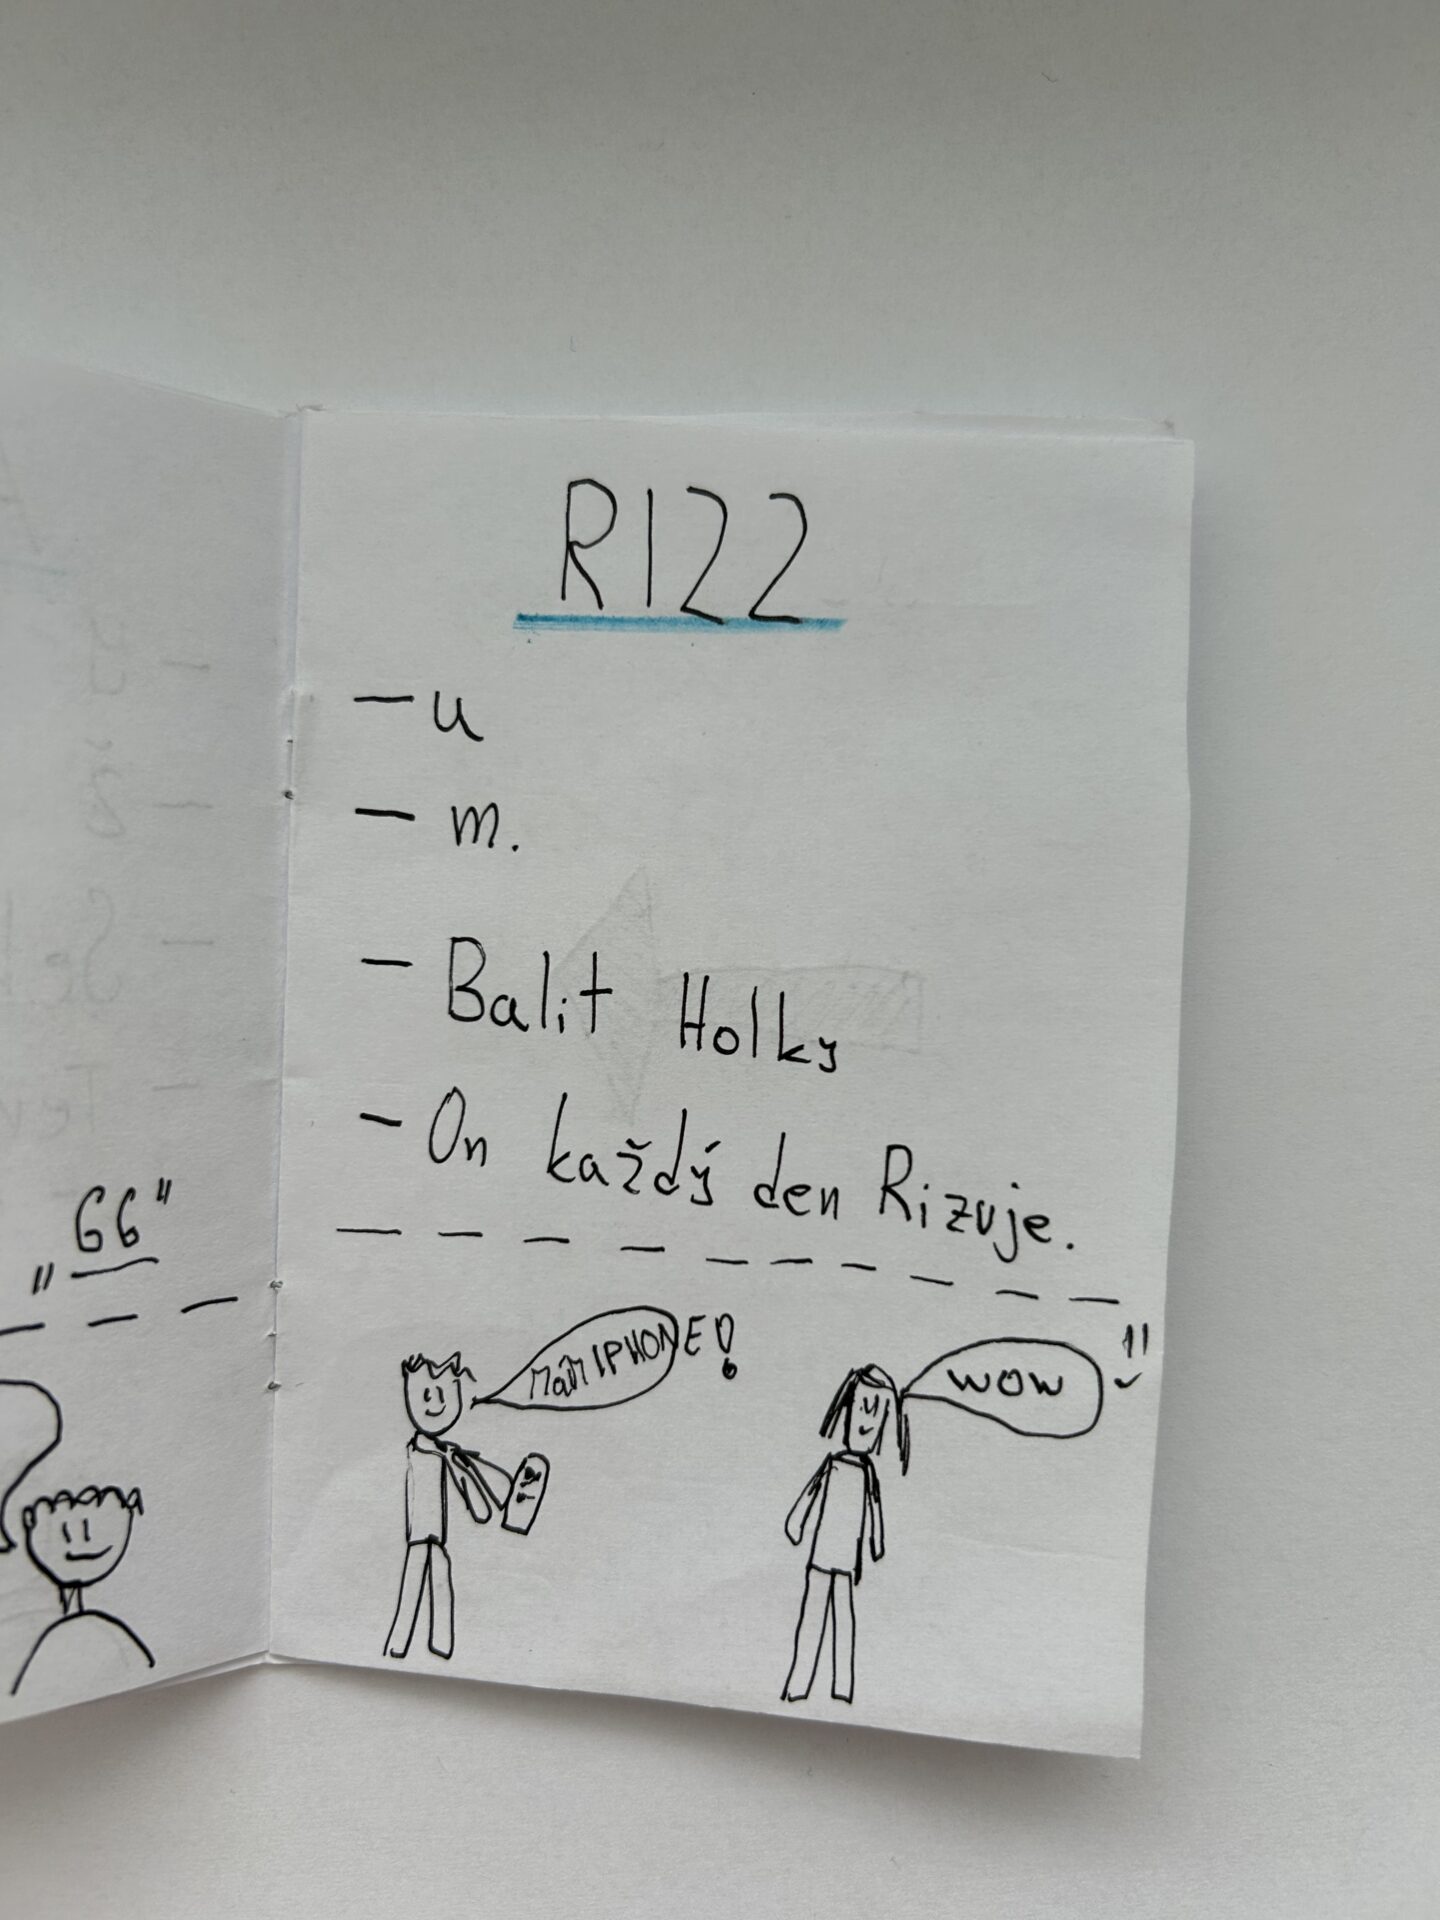 RIZZ
- u
- m.
- Balit Holky
- On každý den Rizuje.
MÁM IPHONE!
WOW
"GG"